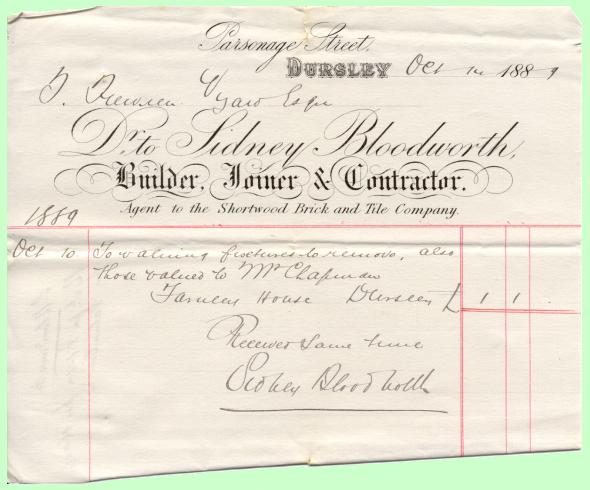 Parsonage Street,
DURSLEY Oct 1889
Vizard Esqr
Dr. to Sidney Bloodworth,
Builder, Joiner & Contractor.
Agent to the Shortwood Brick and Tile Company.
1889
Oct 10 To valuing fixtures to remove, also
those valued to Mr Chapman
House Dursley £ 1 1
Received same time
Sidney Bloodworth